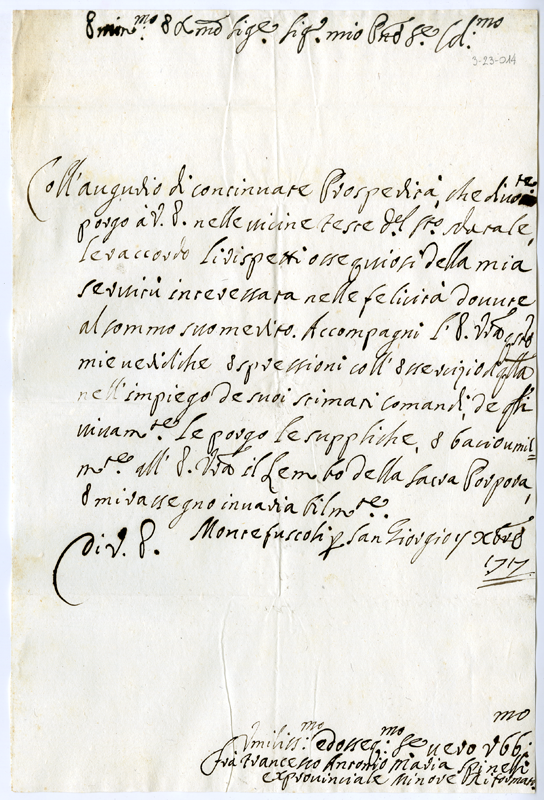 Emin.mo e Rmo Sig.re Sig.r mio Pne Se Col.mo
3-23-014
Coll'augurio di continuate Prosperità, che divote
porgo à V. E. nelle vicine feste del Sto Natale,
le raccordo li rispetti ossequiosi della mia
servitù interessata nelle felicità dovute
al sommo suo merito. Accompagni l'E. Vra qste
mie veridiche espressioni coll'esservizio di qlla
nell'impiego de suoi stimati comandi, de qli
vivam.te le porgo le suppliche, e bacio umil=
m.te all'E. Vra il Lembo della Sacra Porpora,
e mi rassegno invariabilm.te
Di V. E. Montefuscoli p San Giorgio Xbre
1717
Umiliss.mo ed osseq.mo Se vero obb.mo
frà Francesco Antonio Maria Spinelli
exprovinciale Minore Riformato